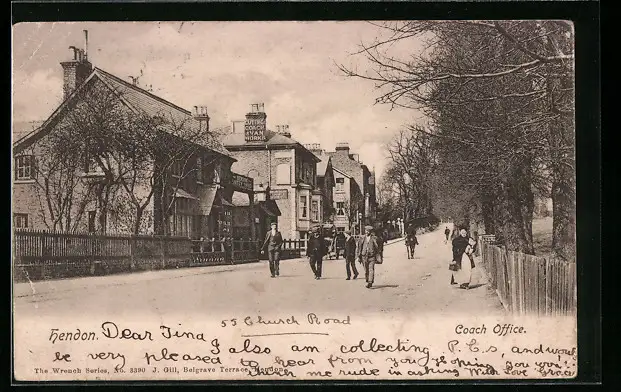 COACH
& VAN
WORKS
55 Church Road
Hendon. Dear Tina I also am collecting P.C.s, and would
Coach Office.
be very pleased to hear from you, hoping you won't
The Wrench Series, No. 3390 J. Gill, Belgrave Terrace, Hendon
me rude in asking with love from